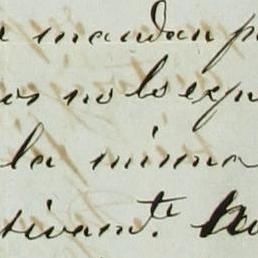 mandan p
os no lo exp
la misma
tivam.te